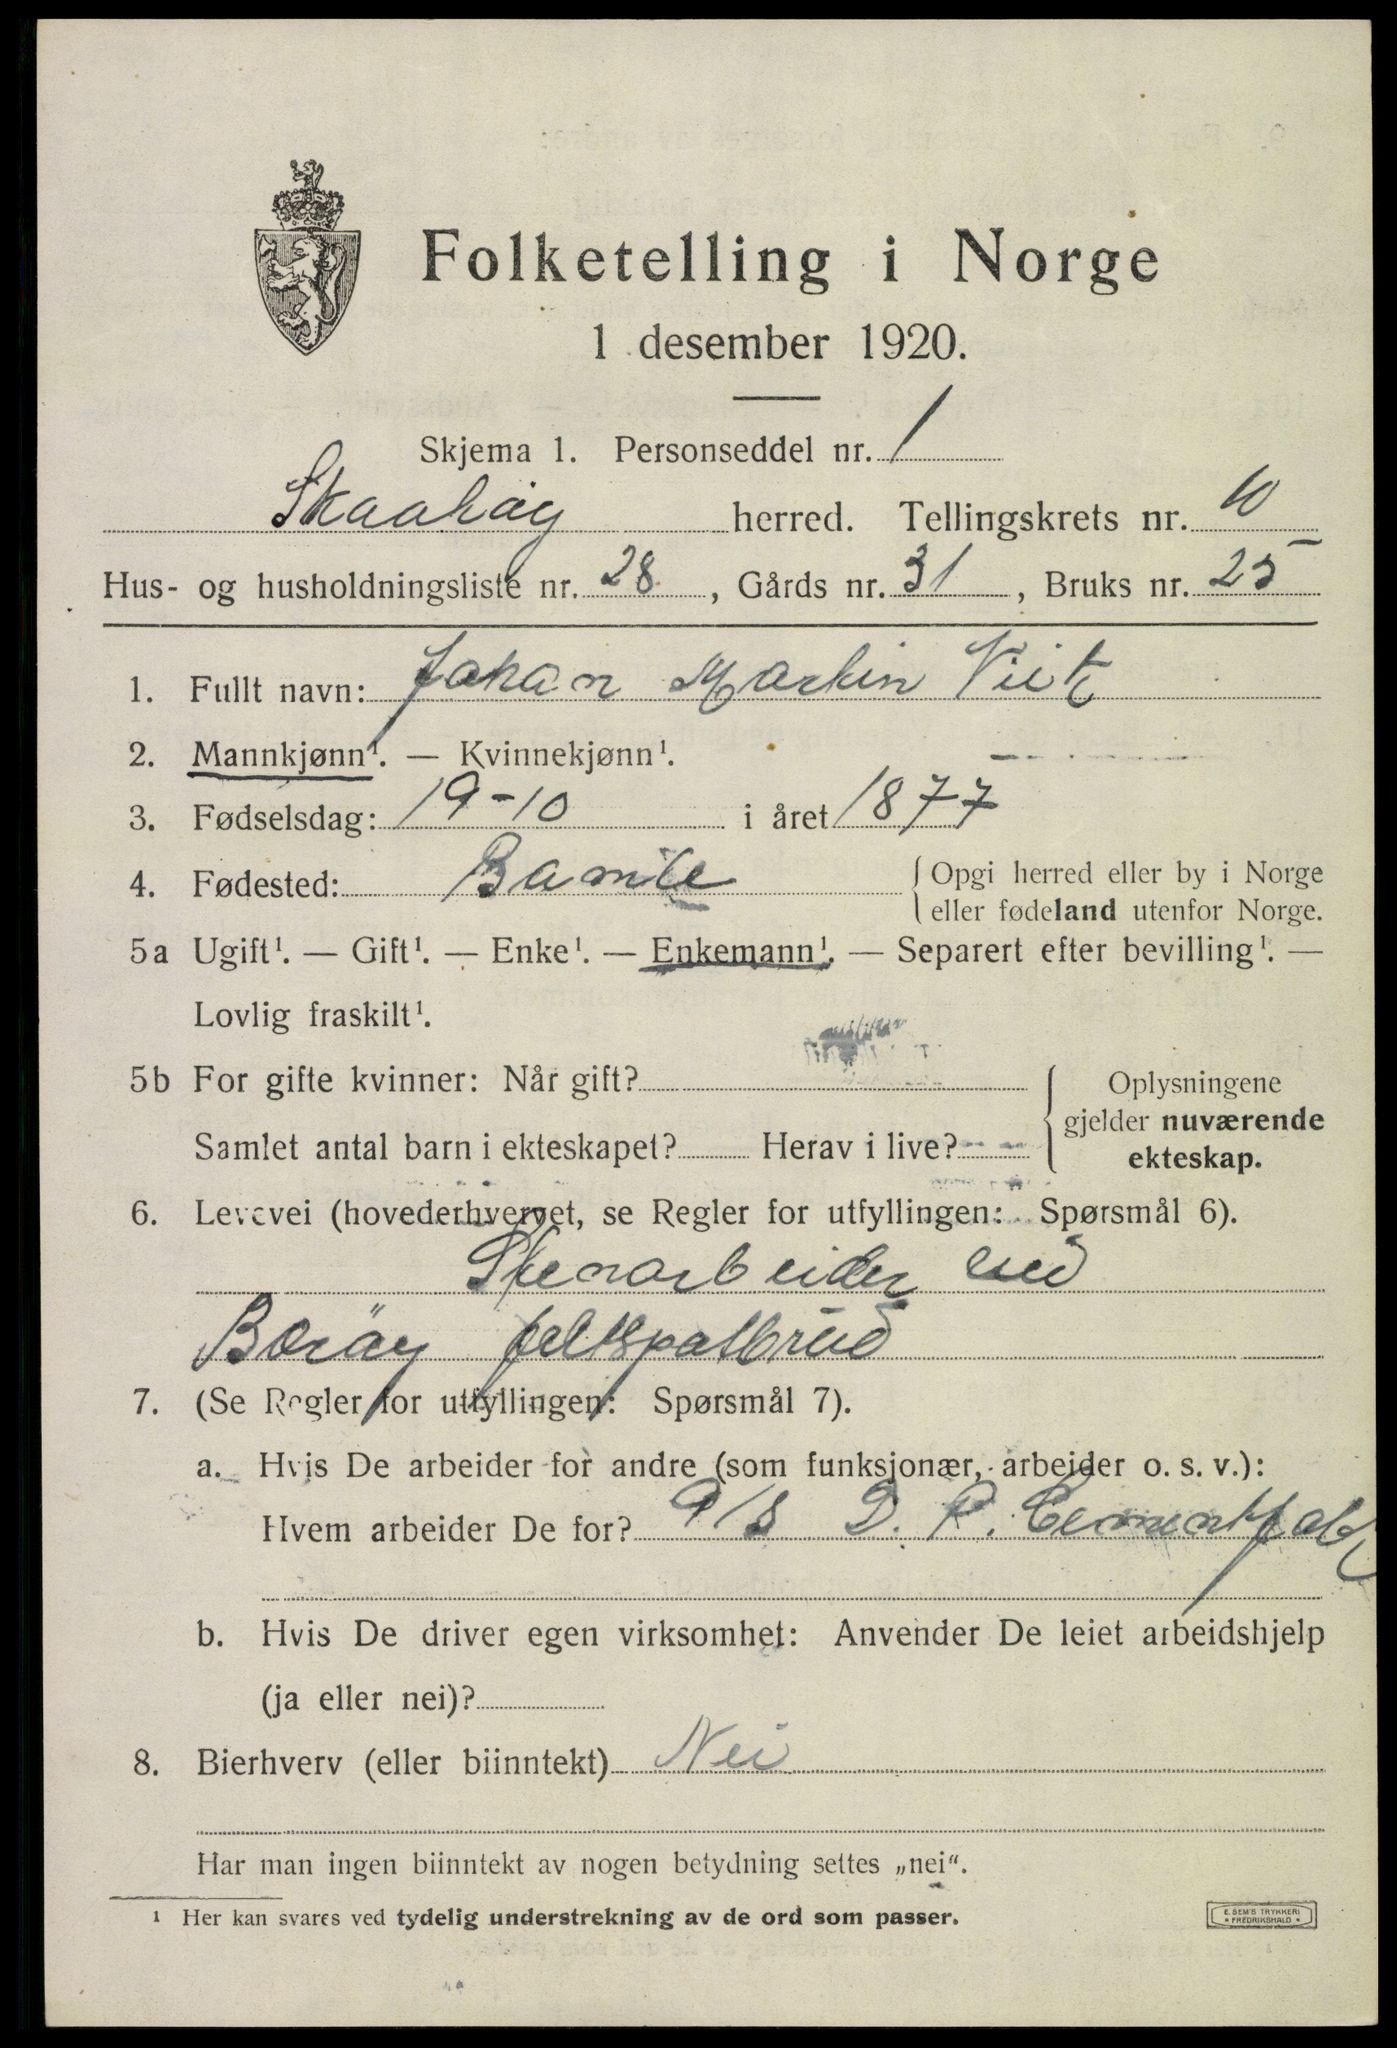 Folketelling i Norge
1 desember 1920.
Skjema 1. Personseddel nr. 1
Skaatøy herred. Tellingskrets nr. 10
Hus- og husholdningsliste nr. 28, Gårds nr. 31, Bruks nr. 25
1. Fullt navn: Johan Martin
2. Mannkjønn¹. — Kvinnekjønn¹.
3. Fødselsdag: 19-10 i året 1877
4. Fødested: Bamle { Opgi herred eller by i Norge
eller fødeland utenfor Norge.
5a Ugift¹. — Gift¹. — Enke¹. — Enkemann¹. — Separert efter bevilling¹. —
Lovlig fraskilt¹.
5b For gifte kvinner: Når gift?
Samlet antal barn i ekteskapet? Herav i live?
Oplysningene
gjelder nuværende
ekteskap.
6. Levevei (hovederhvervet, se Regler for utfyllingen: Spørsmål 6).
Stenarbeider ved
Barøy feltspatbrud
7. (Se Regler for utfyllingen: Spørsmål 7).
a. Hvis De arbeider for andre (som funksjonær, arbeider o. s. v.):
Hvem arbeider De for? A/S D. P. Cementfabr
b. Hvis De driver egen virksomhet: Anvender De leiet arbeidshjelp
(ja eller nei)?
8. Bierhverv (eller biinntekt) Nei
Har man ingen biinntekt av nogen betydning settes „nei“.
¹ Her kan svares ved tydelig understrekning av de ord som passer.
E. SEM'S TRYKKERI
FREDRIKSHALD